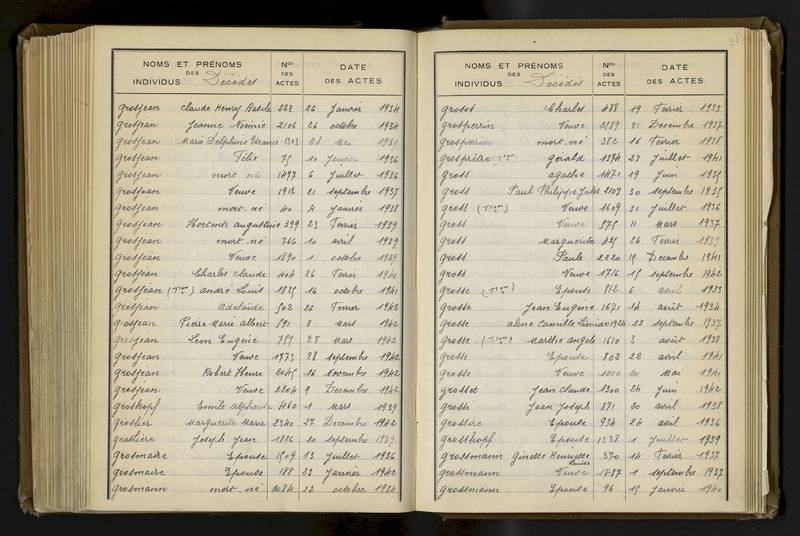 NOMS ET PRÉNOMS
DES
INDIVIDUS Décédés
Nos
DES
ACTES
DATE
DES ACTES
Grosjean Claude Henry Basile 223 26 Janvier 1934
Grosjean Jeanne Noëmie 2106 26 octobre 1934
Grosjean Marie Delphine 1303 28 Mai
Grosjean Félix 75 10 Janvier 1936
Grosjean mort-né 1477 6 Juillet 1936
Grosjean Veuve 1912 21 septembre 1937
Grosjean mort-né 40 4 Janvier 1938
Grosjean Hortense Augustine 399 23 Février 1939
Grosjean mort-né 766 10 avril 1939
Grosjean Veuve 1890 1 octobre 1939
Grosjean Charles Claude 404 26 Février 1941
Grosjean André Louis 1825 16 octobre 1941
Grosjean Adelaïde 502 26 Février 1942
Grosjean Pierre Marie Albert 591 8 Mars 1942
Grosjean Léon Eugène 757 28 Mars 1942
Grosjean Veuve 1773 28 septembre 1942
Grosjean Robert Henri 2045 16 Novembre 1942
Grosjean Veuve 2204 9 Décembre 1942
Groskopf Emile Alphonse 460 1 Mars 1939
Groslier Marguerite Marie 2340 27 Décembre 1942
Groslière Joseph Jean 1826 20 septembre 1939
Grosmaire Epouse 1509 13 Juillet 1936
Grosmaire Epouse 188 23 Janvier 1942
Grosmann mort-né 2084 22 octobre 1934
NOMS ET PRÉNOMS
DES
INDIVIDUS Décédés
Nos
DES
ACTES
DATE
DES ACTES
Grosot Charles 488 19 Février 1933
Grosperrin Veuve 2589 31 Décembre 1937
Grosperrin mort-né 382 16 Février 1938
Gérald 1374 23 Juillet 1941
Gross Agathe 1471 19 Juin 1935
Gross Paul Philippe Jules 2107 30 septembre 1935
Gross Veuve 1609 31 Juillet 1936
Gross Veuve 575 11 Mars 1937
Gross Marguerite 425 26 Février 1939
Gross Paule 2220 19 Décembre 1941
Gross Veuve 1716 15 septembre 1942
Grosse Epouse 812 6 avril 1933
Grosse Jean Eugène 1671 14 août 1934
Grosse Aline Camille 1924 22 septembre 1937
Grosse Marthe Angèle 1610 3 août 1938
Grosse Epouse 802 22 avril 1941
Grosse Veuve 1000 20 Mai 1941
Grosset Jean Claude 1300 24 Juin 1942
Grosse Jean Joseph 871 20 avril 1938
Epouse 934 24 avril 1936
Grossthopf Epouse 1338 1 Juillet 1939
Grossmann Ginette Henriette Louise 370 14 Février 1937
Grossmann Veuve 1787 1 septembre 1937
Grossmann Epouse 96 15 Janvier 1940